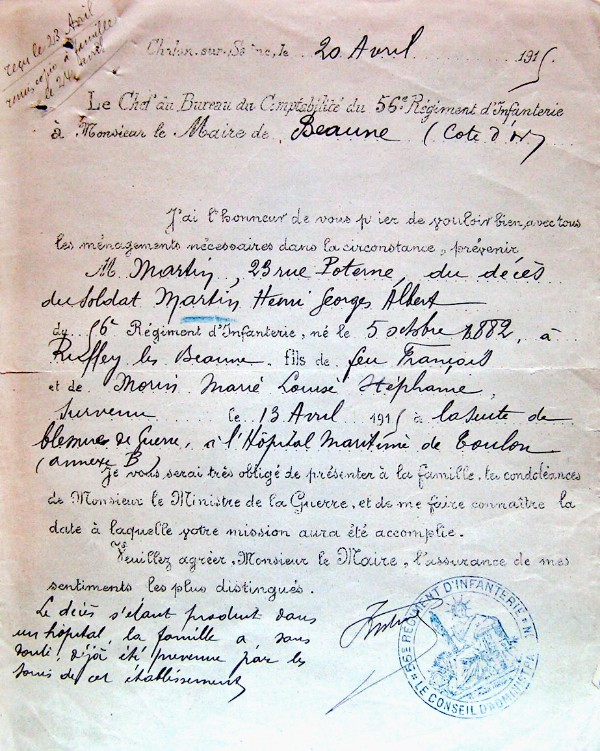 reçu le 23 Avril
remis copie à famille
le 24 avril
Chalon-sur-Saône, le 20 Avril 1915
Le Chef du Bureau du Comptabilité du 56e Régiment d'Infanterie
à Monsieur le Maire de Beaune (Cote d'or)
J'ai l'honneur de vous p ier de vouloir bien, avec tous
les ménagements nécessaires dans la circonstance, prévenir
M Martin, 23 rue Poterne, du décès
du soldat Martin Henri Georges Albert
du 56e Régiment d'Infanterie, né le 5 octobre 1882, à
Ruffey les Beaune, fils de feu François
et de Morin Marie Louise Stéphanie,
survenu le 13 Avril 1915 à la suite de
blessures de Guerre, à l'Hôpital Maritime de Toulon
(annexe B)
Je vous serai très obligé de présenter à la famille, les condoléances
de Monsieur le Ministre de la Guerre, et de me faire connaître la
date à laquelle votre mission aura été accomplie.
Veuillez agréer, Monsieur le Maire, l'assurance de mes
sentiments les plus distingués.
Le décès s'étant produit dans
un hôpital, la famille a sans
doute, déjà été prévenue par les
soins de cet établissement
56e REGIMENT D'INFANTERIE
LE CONSEIL D'ADMINISTRA